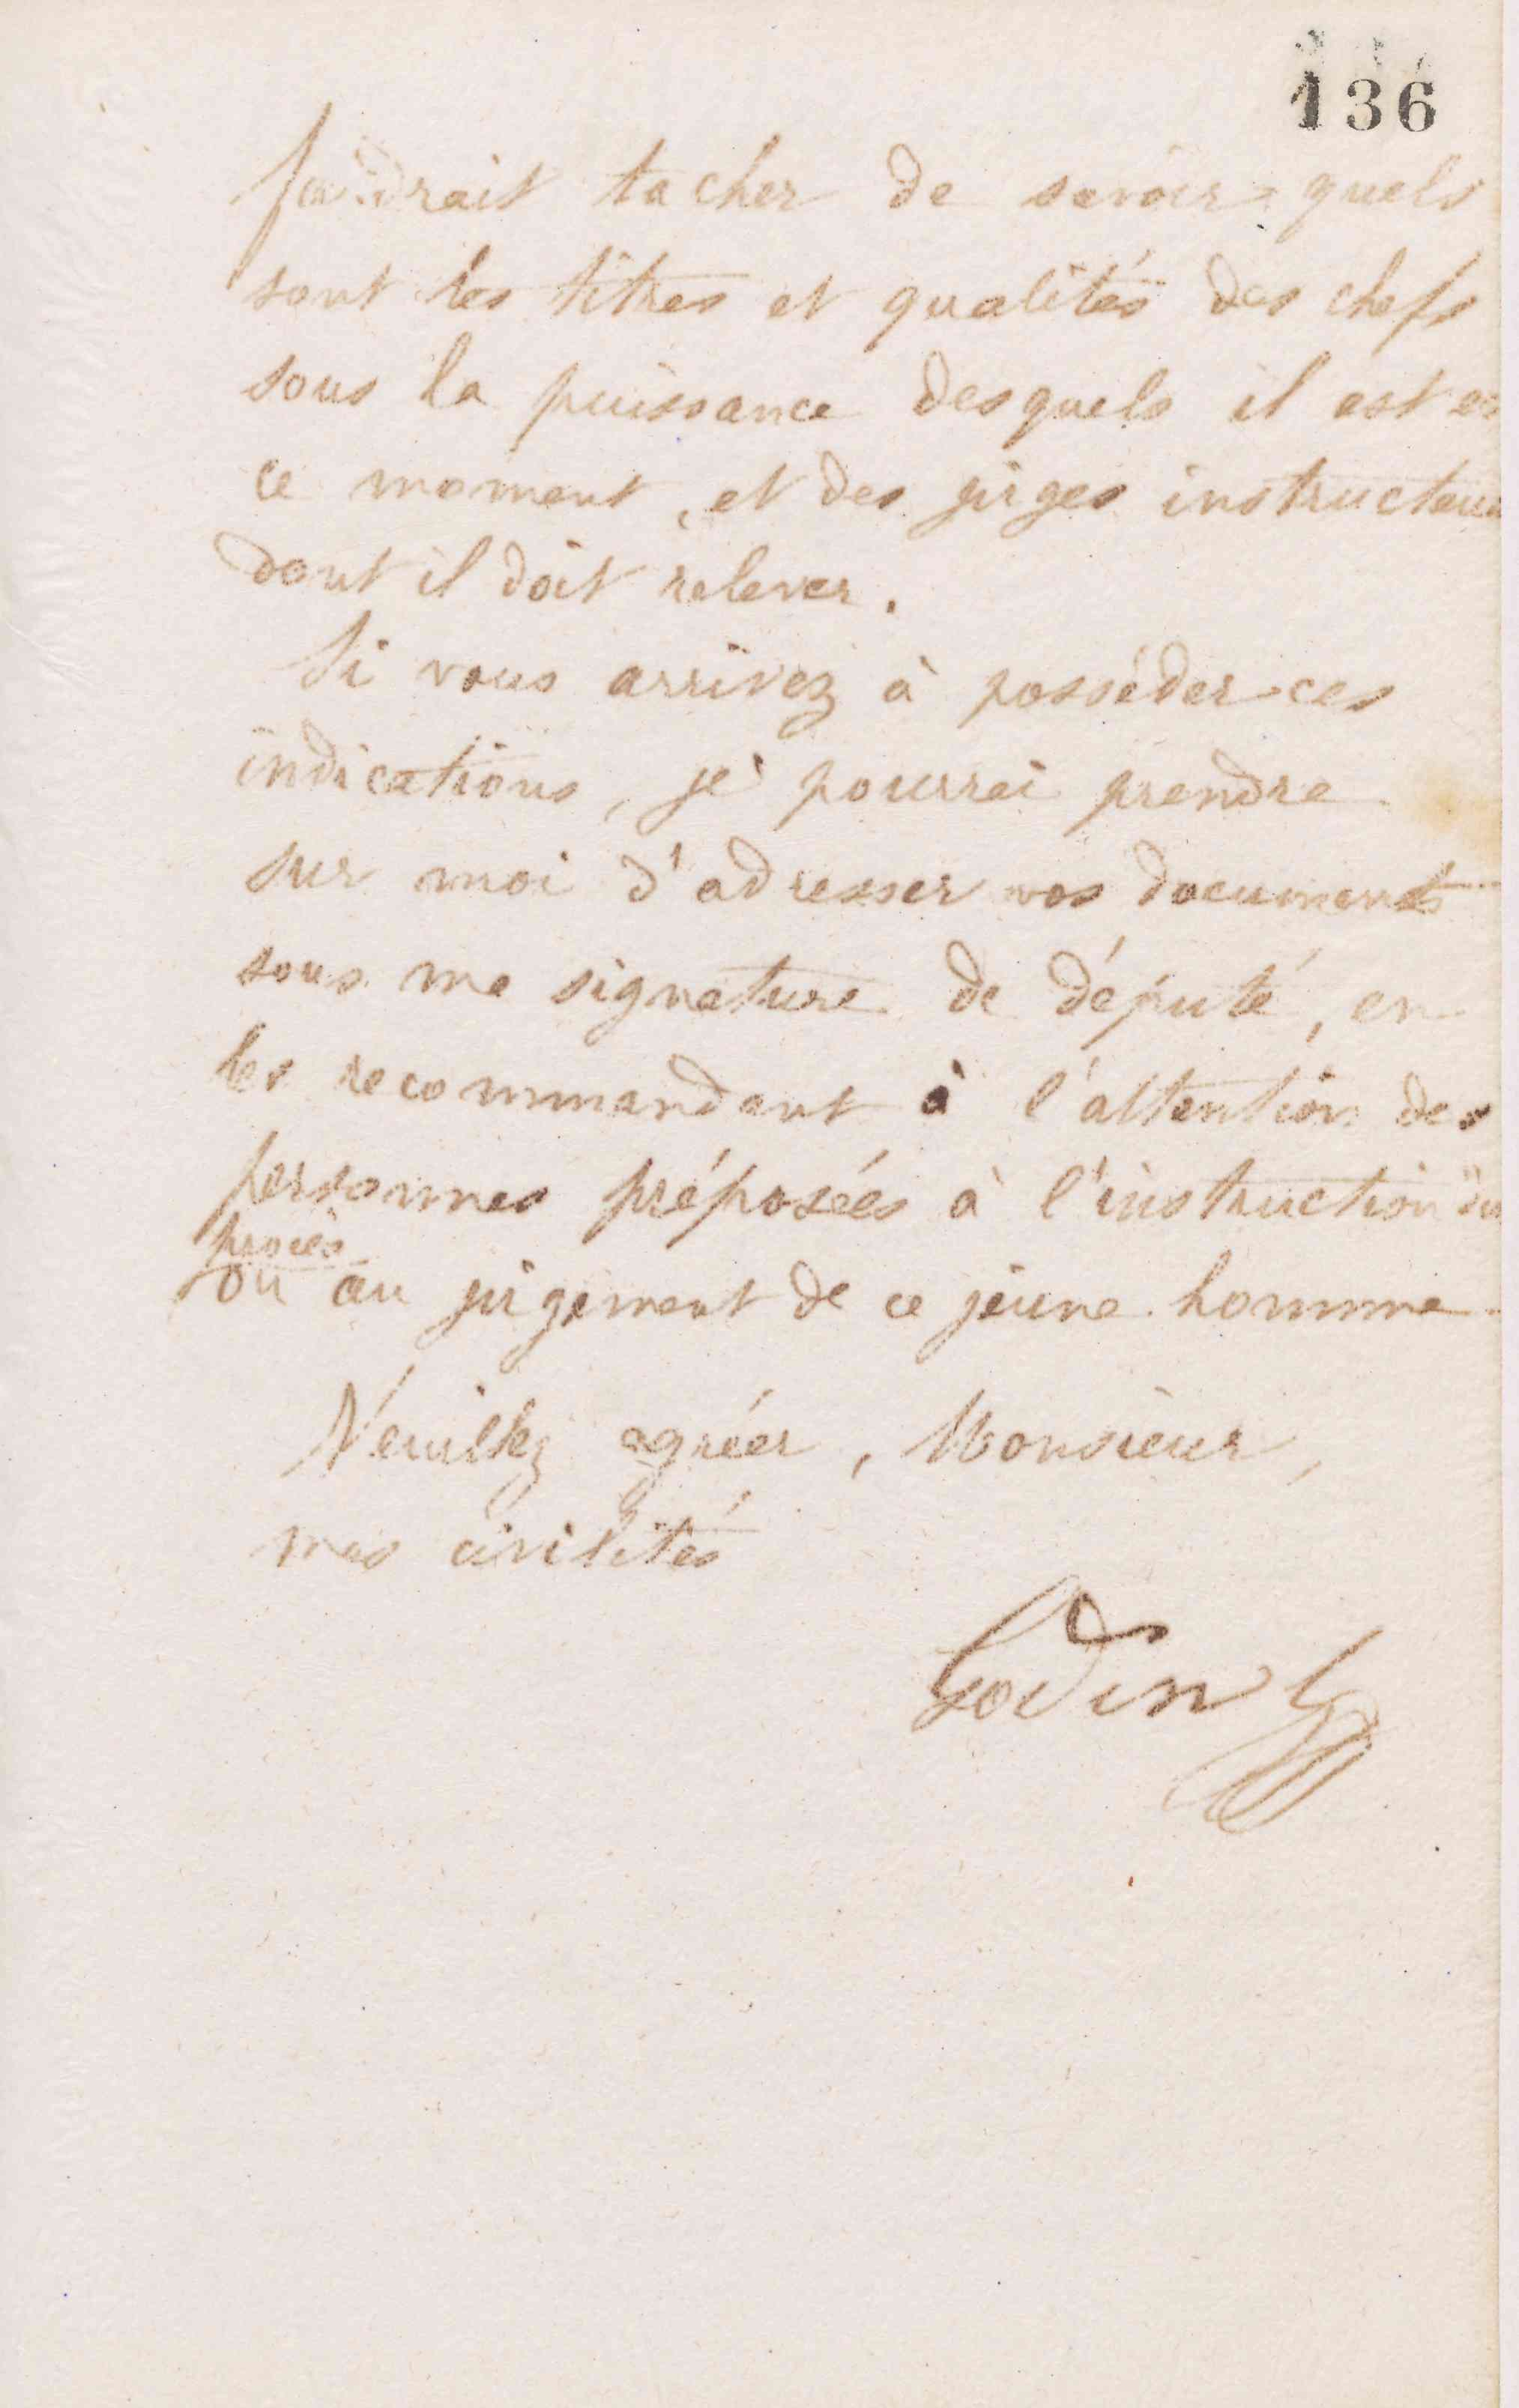 136
faudrait tacher de savoir quels
sont les titres et qualités des chefs
sous la puissance desquels il est en
ce moment, et des juges instructeurs
dont il doit relever.
Si vous arrivez à posséder ces
indications, je pourrai prendre
sur moi d'adresser vos documents
sous ma signature de député, en
les recommandant à l'attention des
personnes préposées à l'instruction du
procès
ou au jugement de ce jeune homme
Veuillez agréer, Monsieur,
mes civilités
Godin